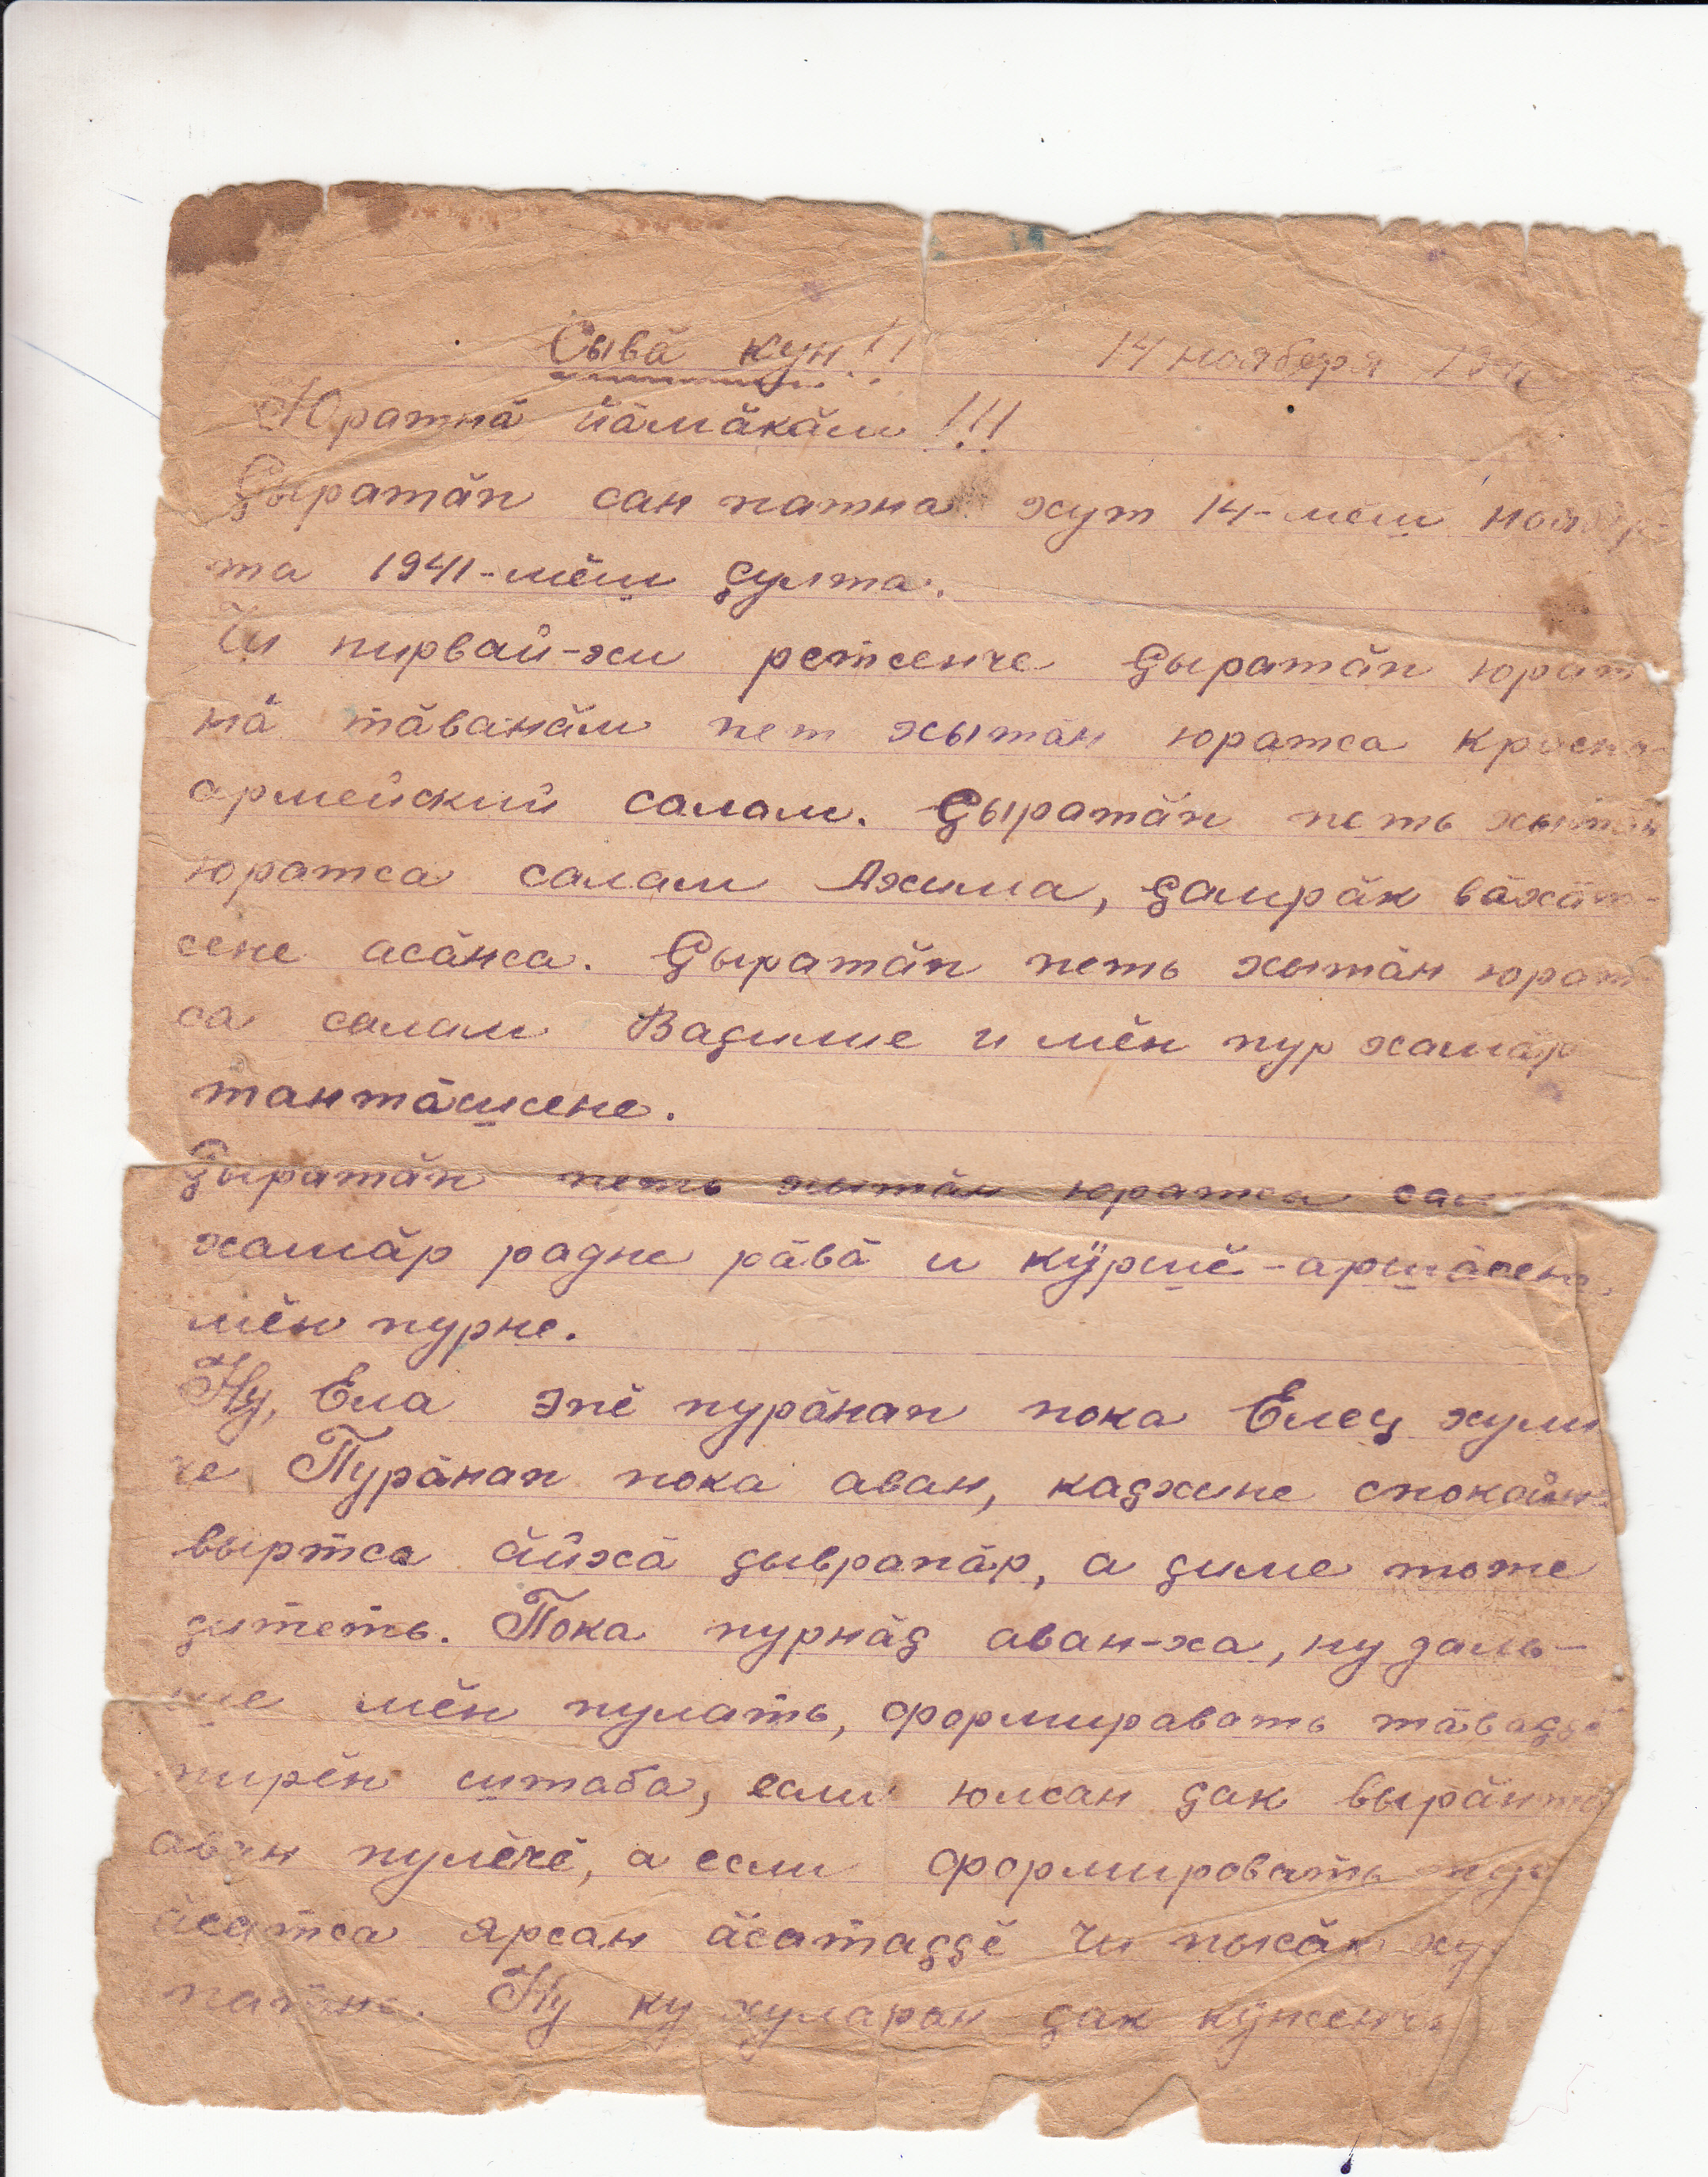 Сывӑ кун!! 14 ноября 1941
Юратнӑ йӑмӑкӑм!!!
Ҫыратӑп сан патна хут 14-мӗш ноябр-
та 1941-мӗш ҫулта.
Чи пирвай-хи ретсенче ҫыратӑп юрат
нӑ тӑванӑм пет хытӑн юратса красно-
армейский салам. Ҫыратӑп петь хытӑн
юратса салам Ахима, ҫамрӑк вӑхӑт-
сене асӑнса. Ҫыратӑп петь хытӑн юрат
са салам Вaҫиме и мӗн пур хамӑр
тантӑшсене.
Ҫыратӑп петь хытӑн юратса сал
хамӑр радне рӑвӑ и кӳршӗ-аршӑсене,
мӗн пурне.
Ну, Ела эпӗ пурӑнап пока Елец хули
че Пурӑнап пока аван, каҫхине спокойнӑ
выртса ӑйхӑ ҫывратӑр, а ҫиме тоже
ҫитеть. Пока пурнӑҫ аван-ха, ну даль-
ше мӗн пулать, формировать тӑваҫҫӗ
пирӗн штаба, если юлсан ҫак вырӑнта
аван пулӗчӗ, а если формировать
ӑсатса ярсан ӑсатаҫҫӗ чи пысӑк
патне. Ну ку хуларан ҫак кӳженчӗ